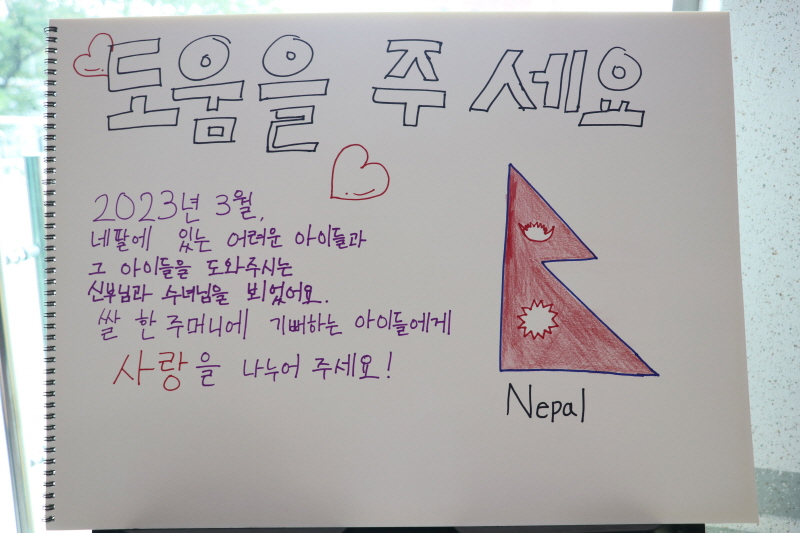 도움을 주세요
2023년 3월,
네팔에 있는 어려운 아이들과
그 아이들을 도와주시는
신부님과 수녀님을 뵈었어요.
쌀 한 주머니에 기뻐하는 아이들에게
사랑을 나누어 주세요!
Nepal